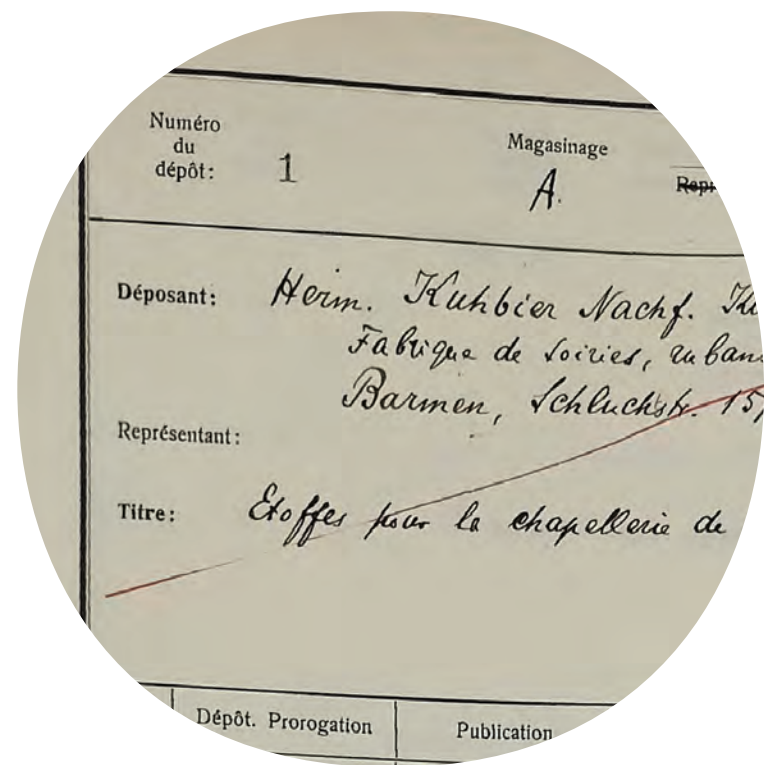 Numéro
du
dépôt: 1
Magasinage
A.
Déposant: Herm. Kuhbier Nachf.
Fabrique de soiries,
Barmen, Schluchstr.
Représentant:
Titre: Etoffes pour la chapellerie de
Dépôt. Prorogation
Publication